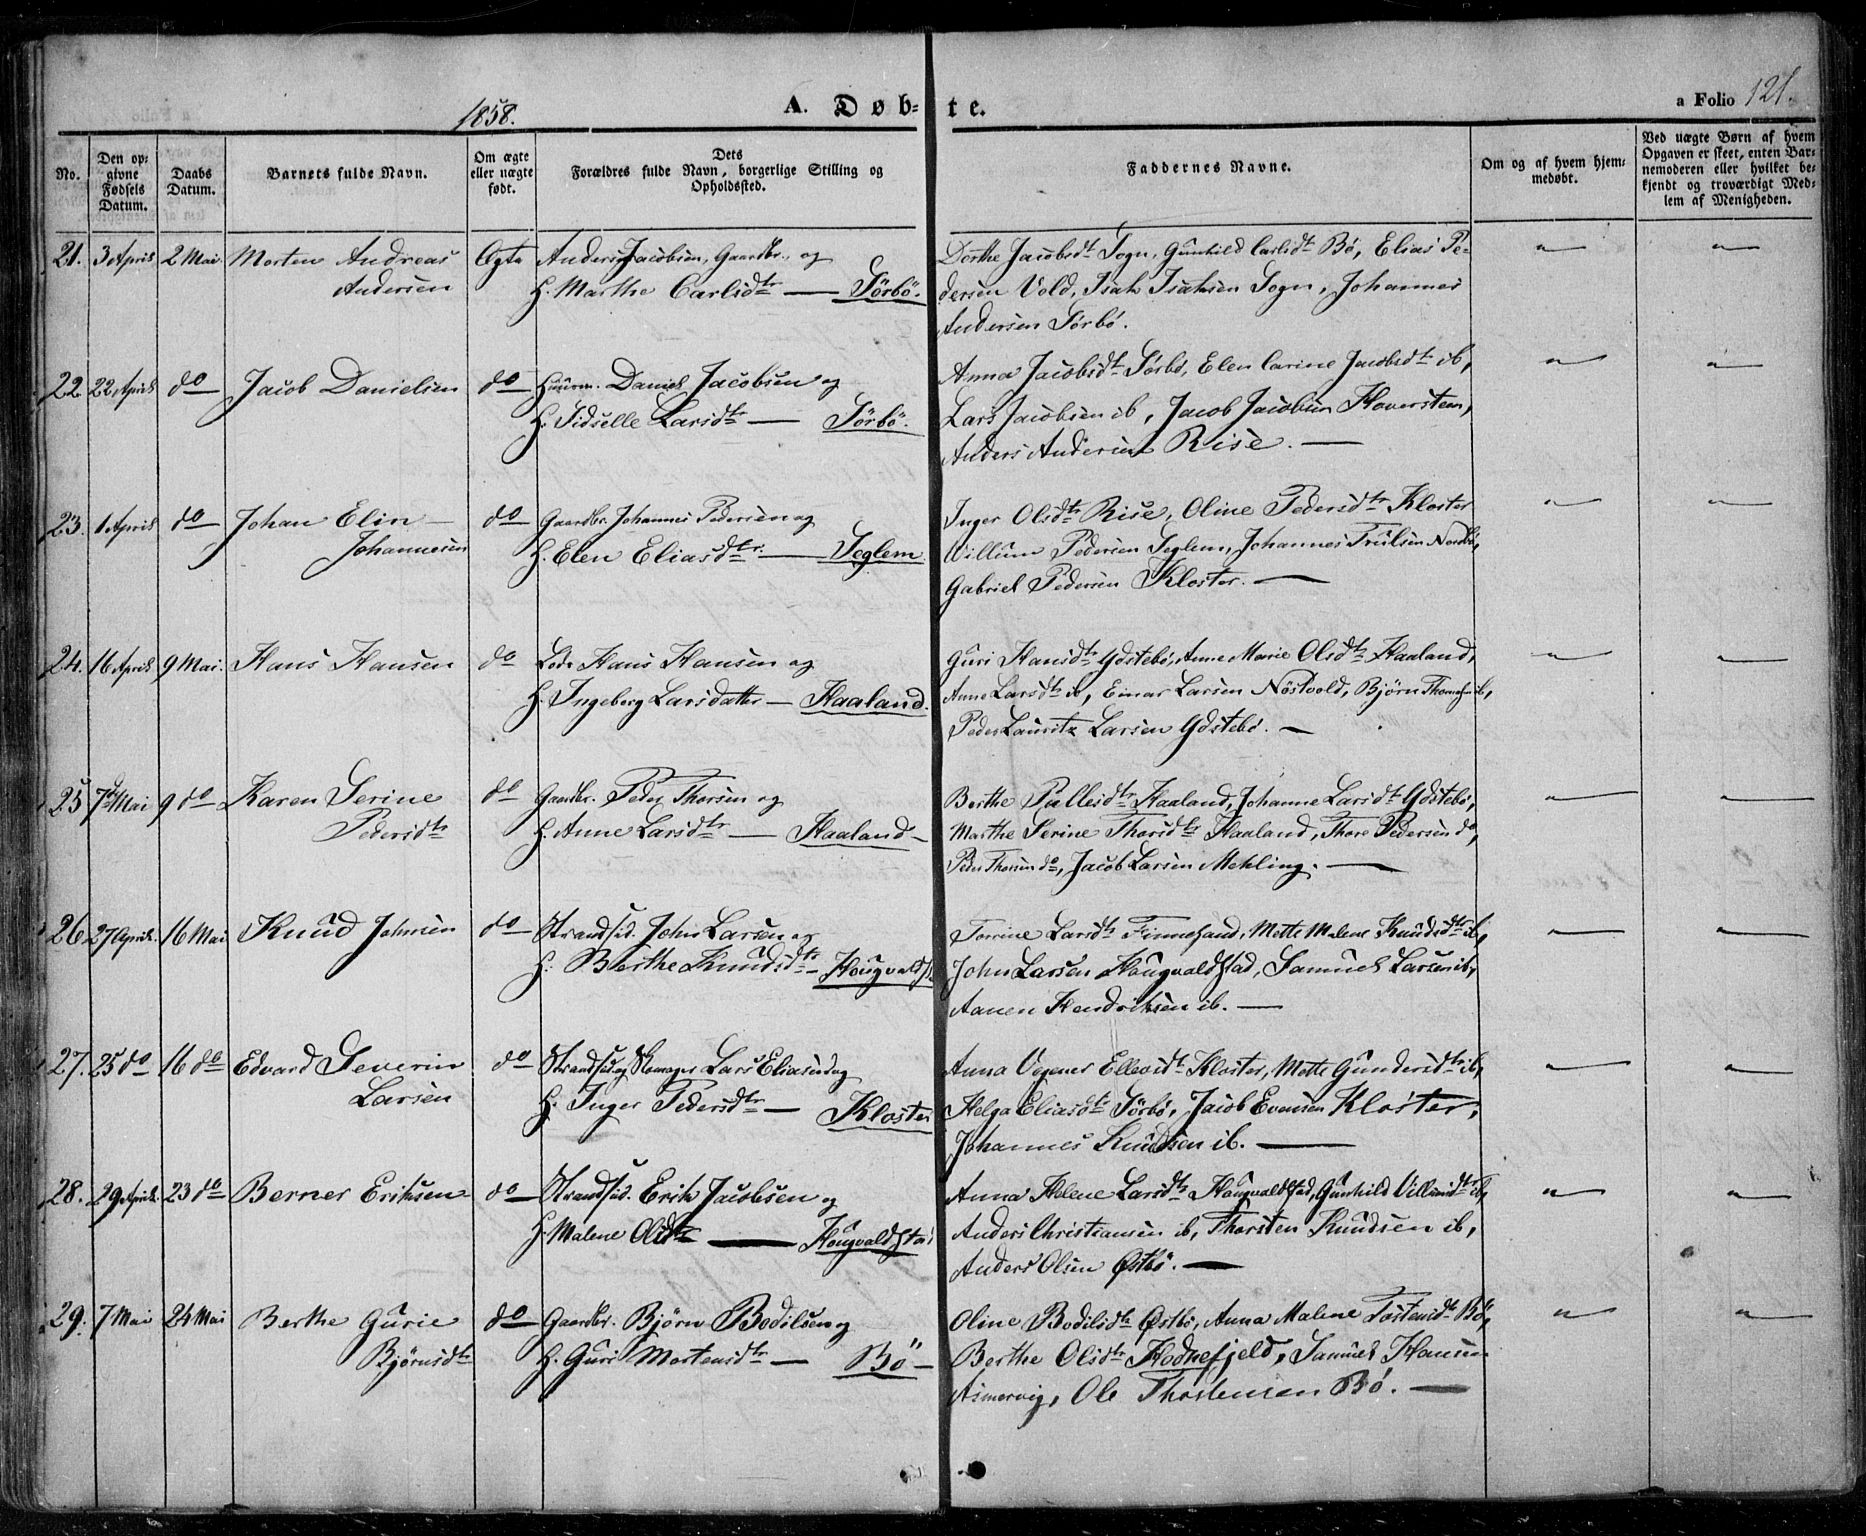 1858. A. Døb- te. a Folio 121.
No.
Den op-
givne
Fødsels
Datum.
Daabs
Datum.
Barnets fulde Navn.
Om ægte
eller uægte
født.
Dets
Forældres fulde Navn, borgerlige Stilling og
Opholdssted.
Faddernes Navne.
Om og af hvem hjem-
medøbt.
Ved uægte Børn af hvem
Opgaven er skeet, enten Bar-
nemoderen eller hvilket be-
kjendt og troværdigt Med-
lem af Menigheden.
21. 3 April 2 Mai. Morten Andreas
Andersen
Ægte Anders Jacobsen, Gaardbr., og
H. Marthe Carlsdtr — Sörbö.
Dorthe Jacobsdt Sogn, Gunhild Carlsdt Bø, Elias Pe-
dersen Vold, Isak Isaksen Sogn, Johannes
Andersen Sørbö.
22. 22 April do Jacob Danielsen
do Huusm. Daniel Jacobsen og
H. Sidselle Larsdtr — Sörbö.
Anna Jacobsdt Sørbø, Elen Carine Jacobsdtr ib,
Lars Jacobsen ib, Jacob Jacobsen Hoversteen,
Anders Andersen Rise. —
23. 1 April do Johan Elin
Johannesen
do Gaardbr. Johannes Pedersen og
H. Elen Eliasdtr. — Teglem
Inger Olsdtr Rise, Oline Pedersdtr Kloster
Villum Pedersen Teglem, Johannes Trulsen Nordbø,
Gabriel Pedersen Kloster. —
24. 16 April 9 Mai. Hans Hansen
do Lods Hans Hansen og
H. Ingeborg Larsdatter — Haaland.
Guri Hansdtr Ydstebö, Anne Marie Olsdtr Haaland,
Anne Larsdtr ib, Einar Larsen Nöstvold, Bjørn Thomesen ib,
Peder Lauritz Larsen Ydstebö. —
25 7de Mai 9 do Karen Serine
Pedersdtr
do Gaardbr. Peder Thorsen og
H. Anne Larsdtr — Haaland —
Berthe Pallesdtr Haaland, Johanne Larsdt Ydstebö,
Marthe Serine Thorsdtr Haaland, Thore Pedersen do,
Peder Thorsen do, Jacob Larsen Mehling. —
26 27 April. 16 Mai Knud Johnsen
do Strandsid. John Larsen og
H. Berthe Knudsdtr — Hougvaldst
Torrine Larsdtr Finnesand, Mette Malene Knudsdtr ib,
John Larsen Hougvaldstad, Samuel Larsen ib,
Aanen Hendriksen ib. —
27. 25 do 16 do Edvard Severin
Larsen
do Strandsid og Skomager Lars Eliasen og
H. Inger Pedersdtr — Kloster
Anna Ellevsdtr Kloster, Mette Gundersdtr ib,
Helga Eliasdtr Sörbø, Jacob Evensen Kloster,
Johannes Knudsen ib. —
28. 29 April. 23 do Berner Eriksen
do Strandsid. Erik Jacobsen og
H. Malene Olsdtr — Hougvaldstad
Anna Helene Larsdtr Hougvaldstad, Gunhild Villumsdtr ib,
Anders Christiansen ib, Thorsten Knudsen ib,
Anders Olsen Østbö. —
29. 7 Mai 24 Mai Berthe Gurie
Bjørnsdtr
do Gaardbr. Bjørn Bodilsen og
H. Guri Mortensdtr — Bö —
Oline Bodilsdtr Østbø, Anna Malene Tostensdtr Bö,
Berthe Olsdtr Hodnefjeld, Samuel Hansen
Asmervig, Ole Thostensen Bø. —